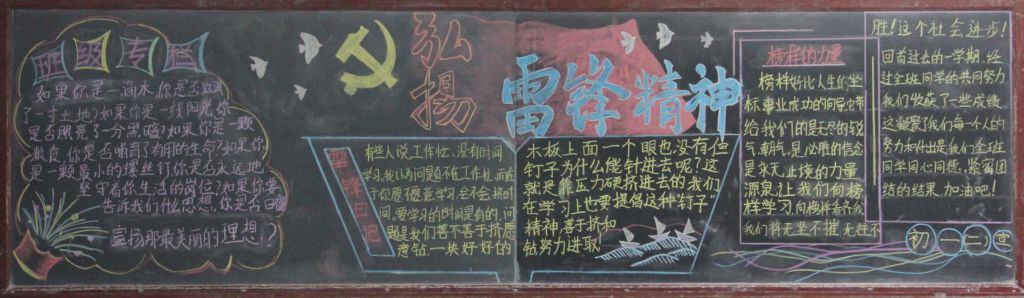 班级专栏
如果你是一滴水,你是否滋润
了一寸土地?如果你是一线阳光,你
是否照亮了一分黑暗?如果你是一颗
粮食,你是否哺育了有用的生命?如果你
是一颗最小的螺丝钉你是否永远地
坚守着你生活的岗位?如果你要
告诉我们什么思想,你是否日夜
宣扬那最美丽的理想?
弘揚
雷锋精神
雷锋日记
有些人说工作忙、没有时间
学习.我认为问题不在工作忙,而在
于你愿不愿意学习,会不会挤时
间.要学习的时间是有的,问
题是我们善不善于挤,愿
意钻.一块好好的
木板上面一个眼也没有但
钉子为什么能钉进去呢?这
就是靠压力硬挤进去的我们
在学习上也要提倡这种"钉子"
精神,善于挤和
钻努力进取
榜样的力量
榜样好比人生的坐
标,事业成功的向导,它带
给我们的是无尽的锐
气,朝气,是必胜的信念
是永无止境的力量
源泉让我们向榜
样学习,向榜样看齐我
们将无坚不摧无往不
胜!这个社会进步!
回首过去的一学期,经
过全班同学的共同努力
我们收获了一些成绩
这凝聚了我们每个人的
努力和付出是我们全班
同学同心同德,紧密团
结的结果.加油吧!
初一(二)宣